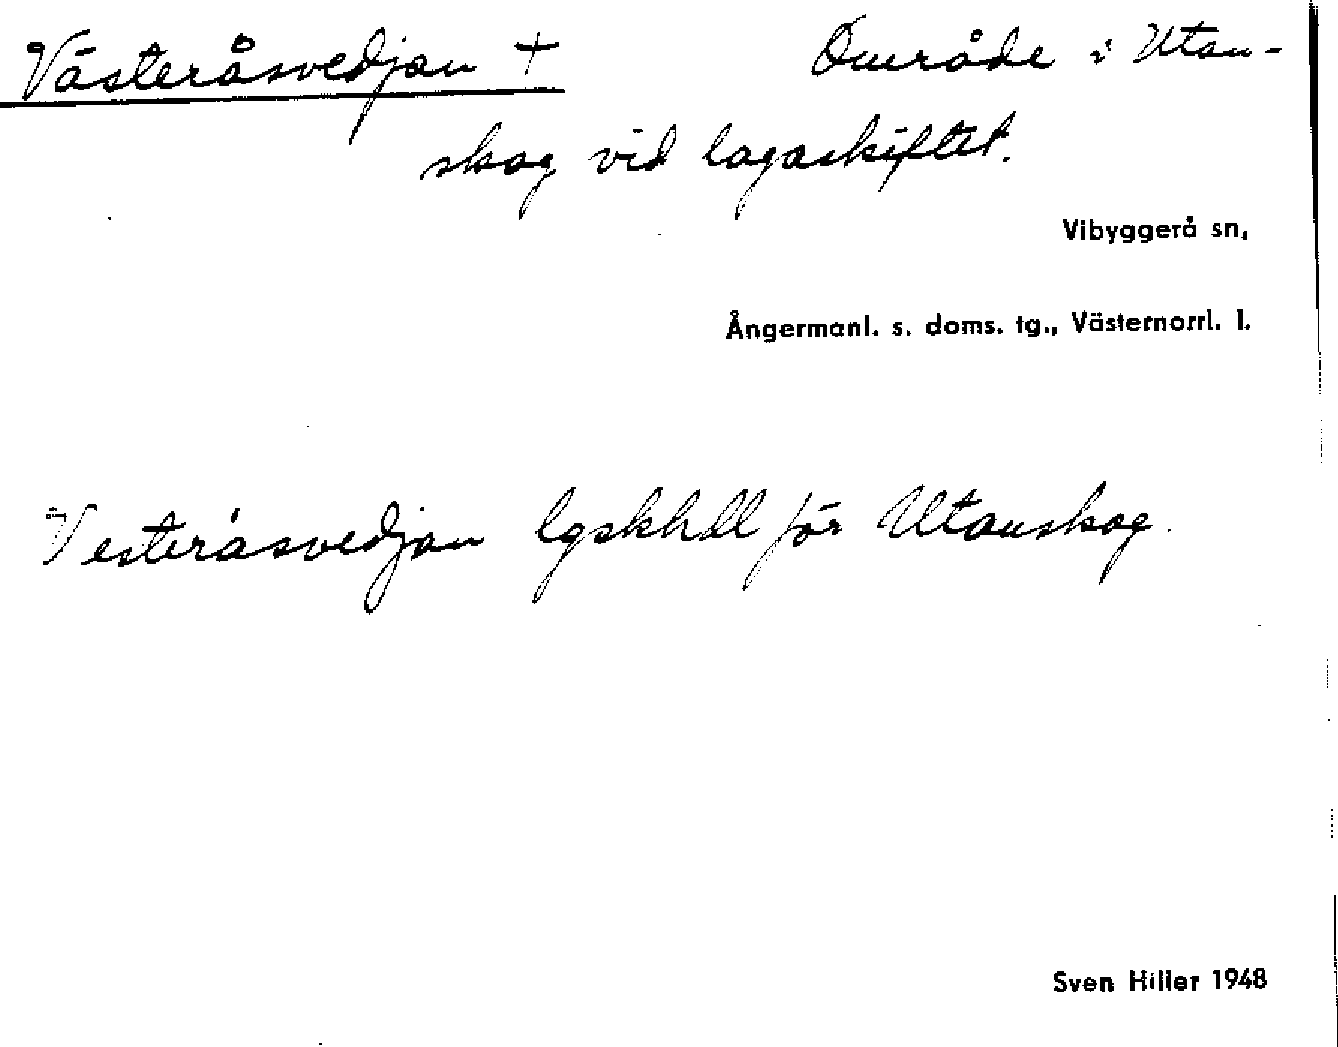 Västeråsvedjan + Område i Utan-
skog vid lagaskiftet.
Vibyggerå sn,
Ångermanl. s. doms. tg., Västernorrl. l.
Vesteråsvedjan lgskhdl för Utanskog.
Sven Hiller 1948